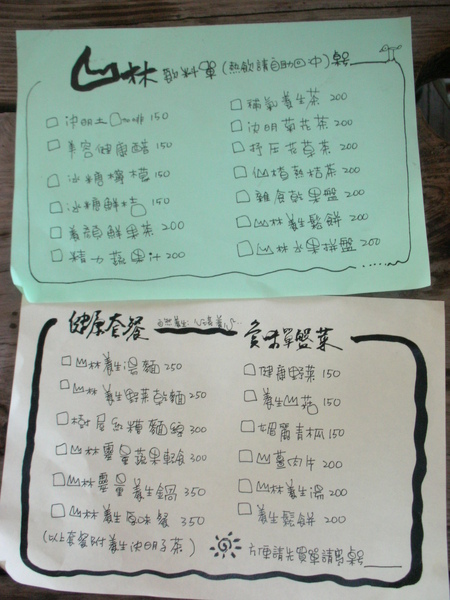 山林飲料單(熱飲請自助回沖)桌號
□ 決明土Coffee 150
□ 美容健康醋 150
□ 冰糖檸檬 150
□ 冰糖鮮桔 150
□ 養顏鮮果茶 200
□ 精力蔬果汁 200
□ 補氣養生茶 200
□ 決明菊花茶 200
□ 抒压花草茶 200
□ 仙楂熱桔茶 200
□ 雜食乾果盤 200
□ 山林養生鬆餅 200
□ 山林水果拼盤 200
健康套餐
□ 山林養生湯麵 250
□ 山林養生野菜乾麵 250
□ 300
□ 山林靈量蔬果輕食 300
□ 山林靈量養生鍋 350
□ 山林養生原味餐 350
(以上套餐附養生決明子茶)
賞味單盤菜
□ 健康野菜 150
□ 養生山菇 150
□ 青木瓜 150
□ 山薑肉片 200
□ 山林養生湯 200
□ 養生鬆餅 200
方便請先買單請寫桌號